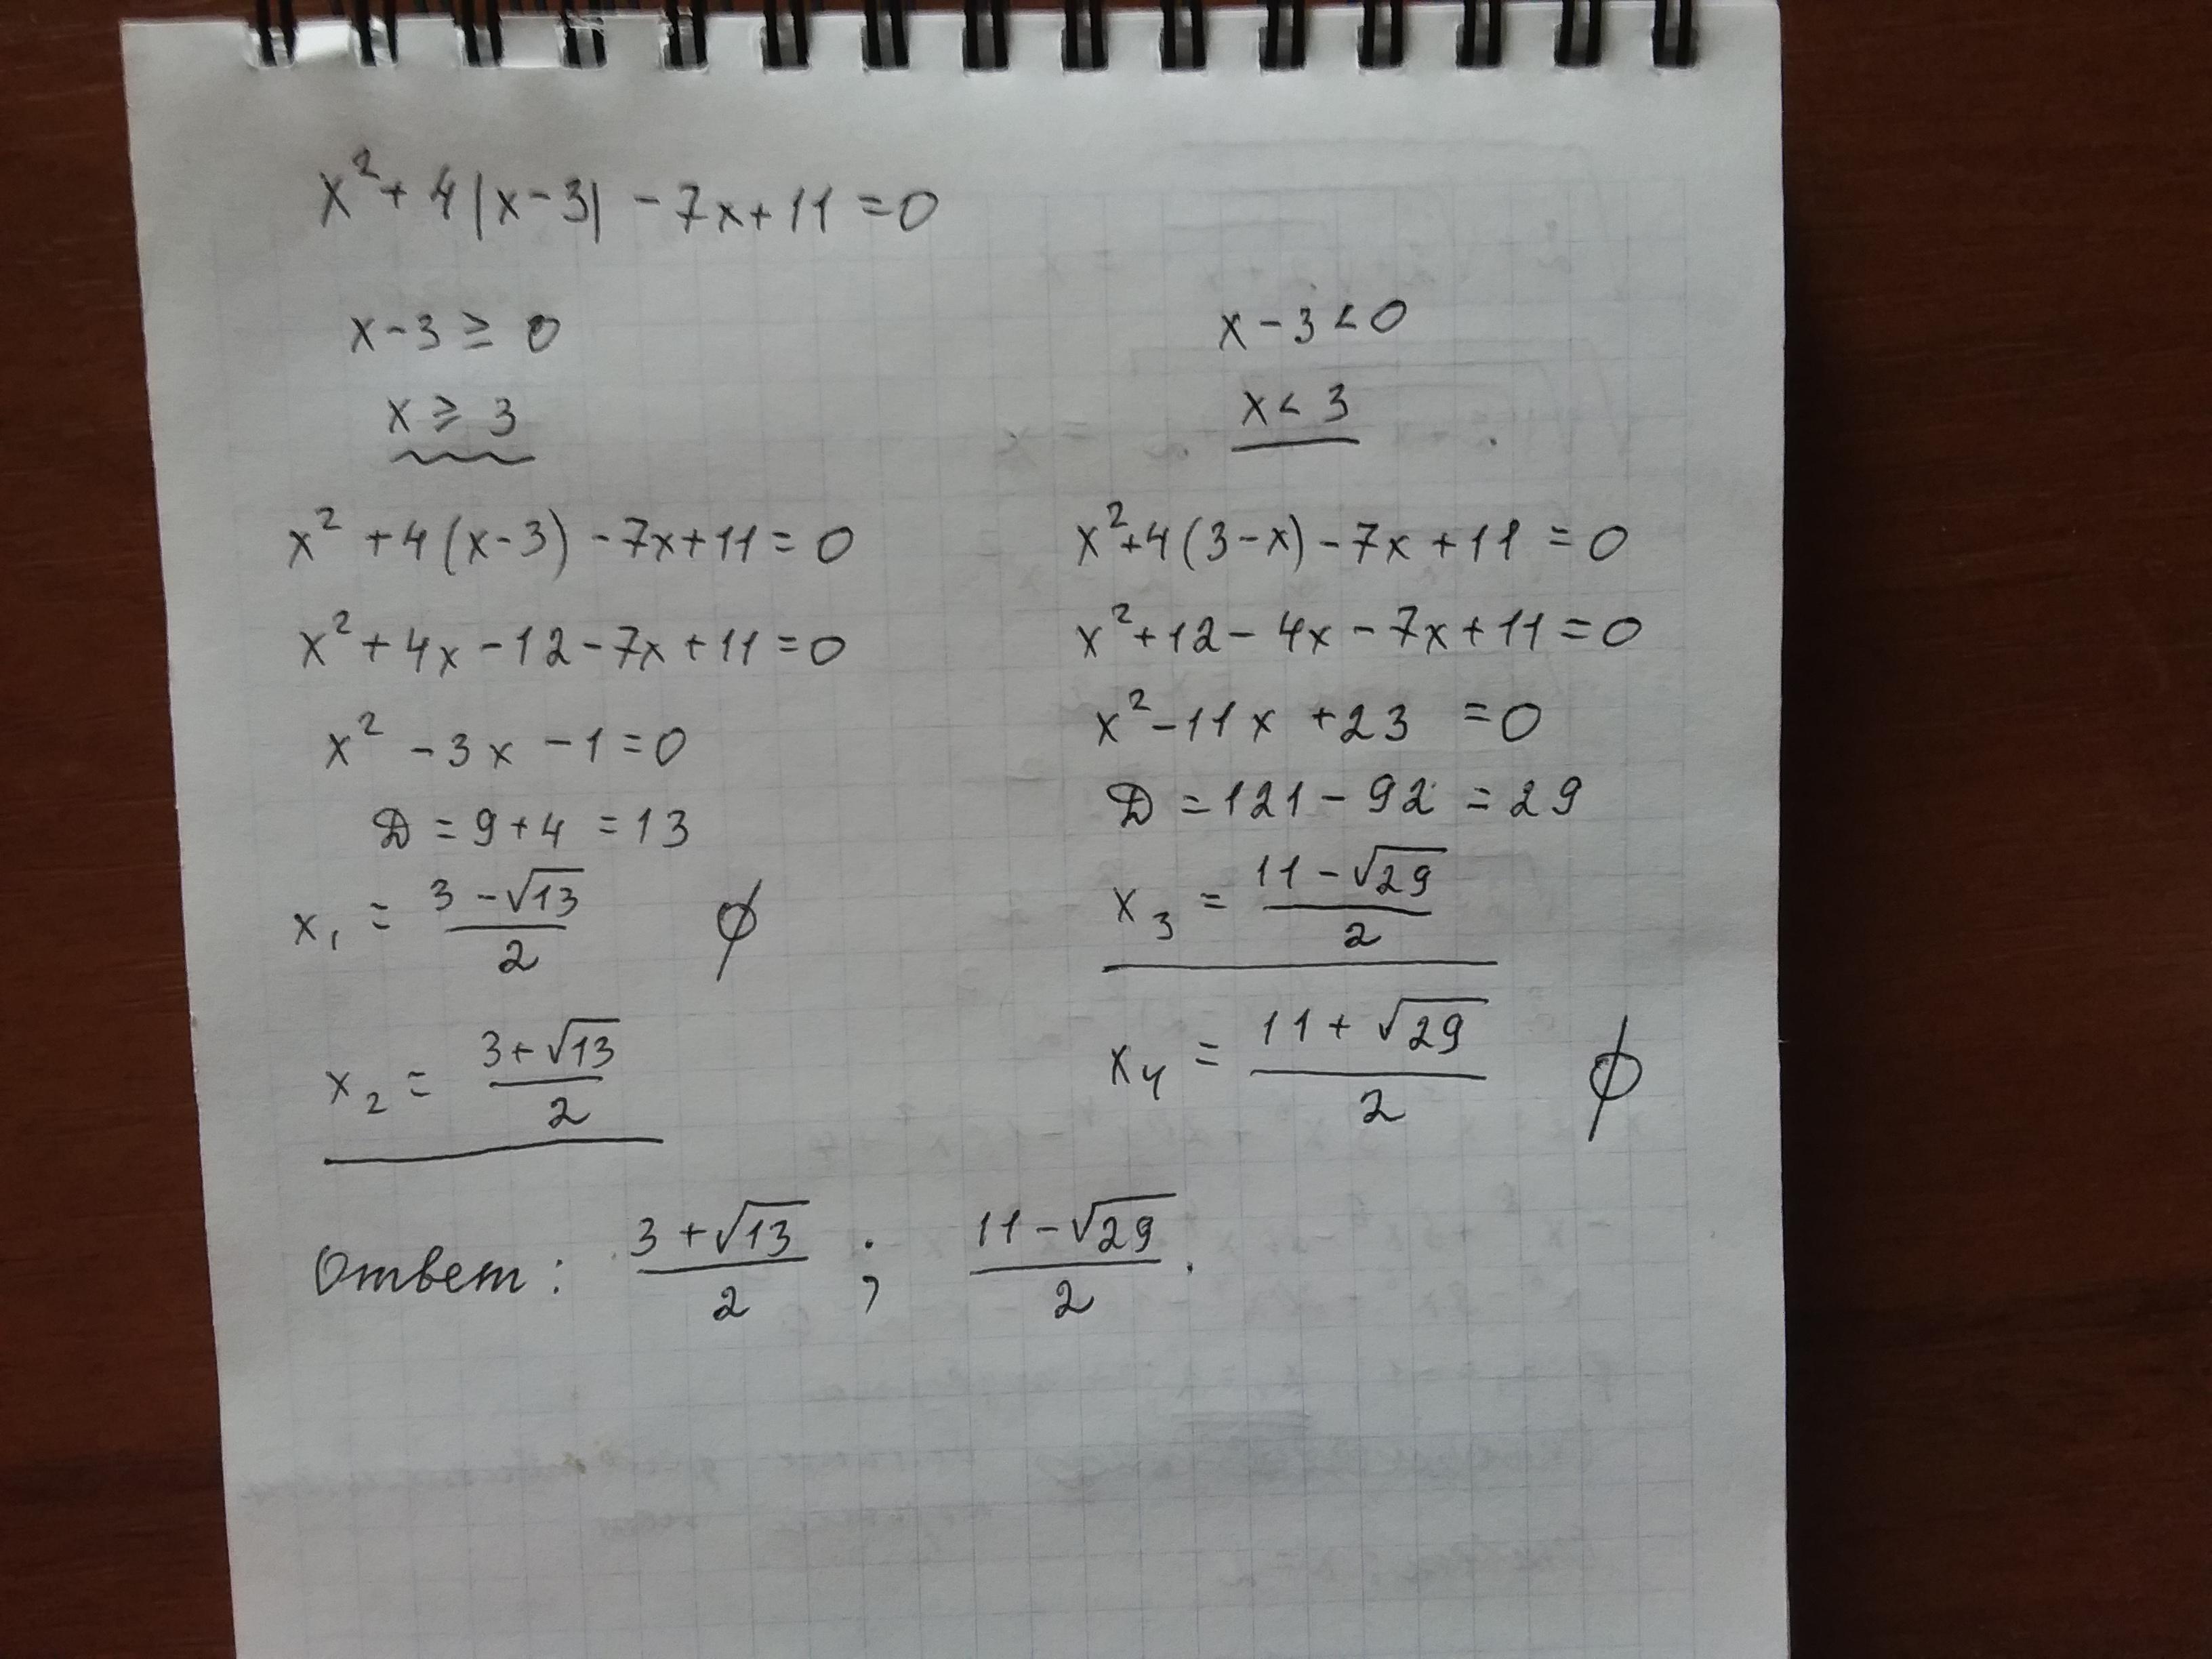 x² + 4|x-3| - 7x + 11 = 0
x - 3 ≥ 0
x ≥ 3
x² + 4(x-3) - 7x + 11 = 0
x² + 4x - 12 - 7x + 11 = 0
x² - 3x - 1 = 0
D = 9 + 4 = 13
x₁ = (3 - √13)/2 ∅
x₂ = (3 + √13)/2
x - 3 < 0
x < 3
x² + 4(3-x) - 7x + 11 = 0
x² + 12 - 4x - 7x + 11 = 0
x² - 11x + 23 = 0
D = 121 - 92 = 29
x₃ = (11 - √29)/2
x₄ = (11 + √29)/2 ∅
Ответ: (3 + √13)/2 ; (11 - √29)/2.